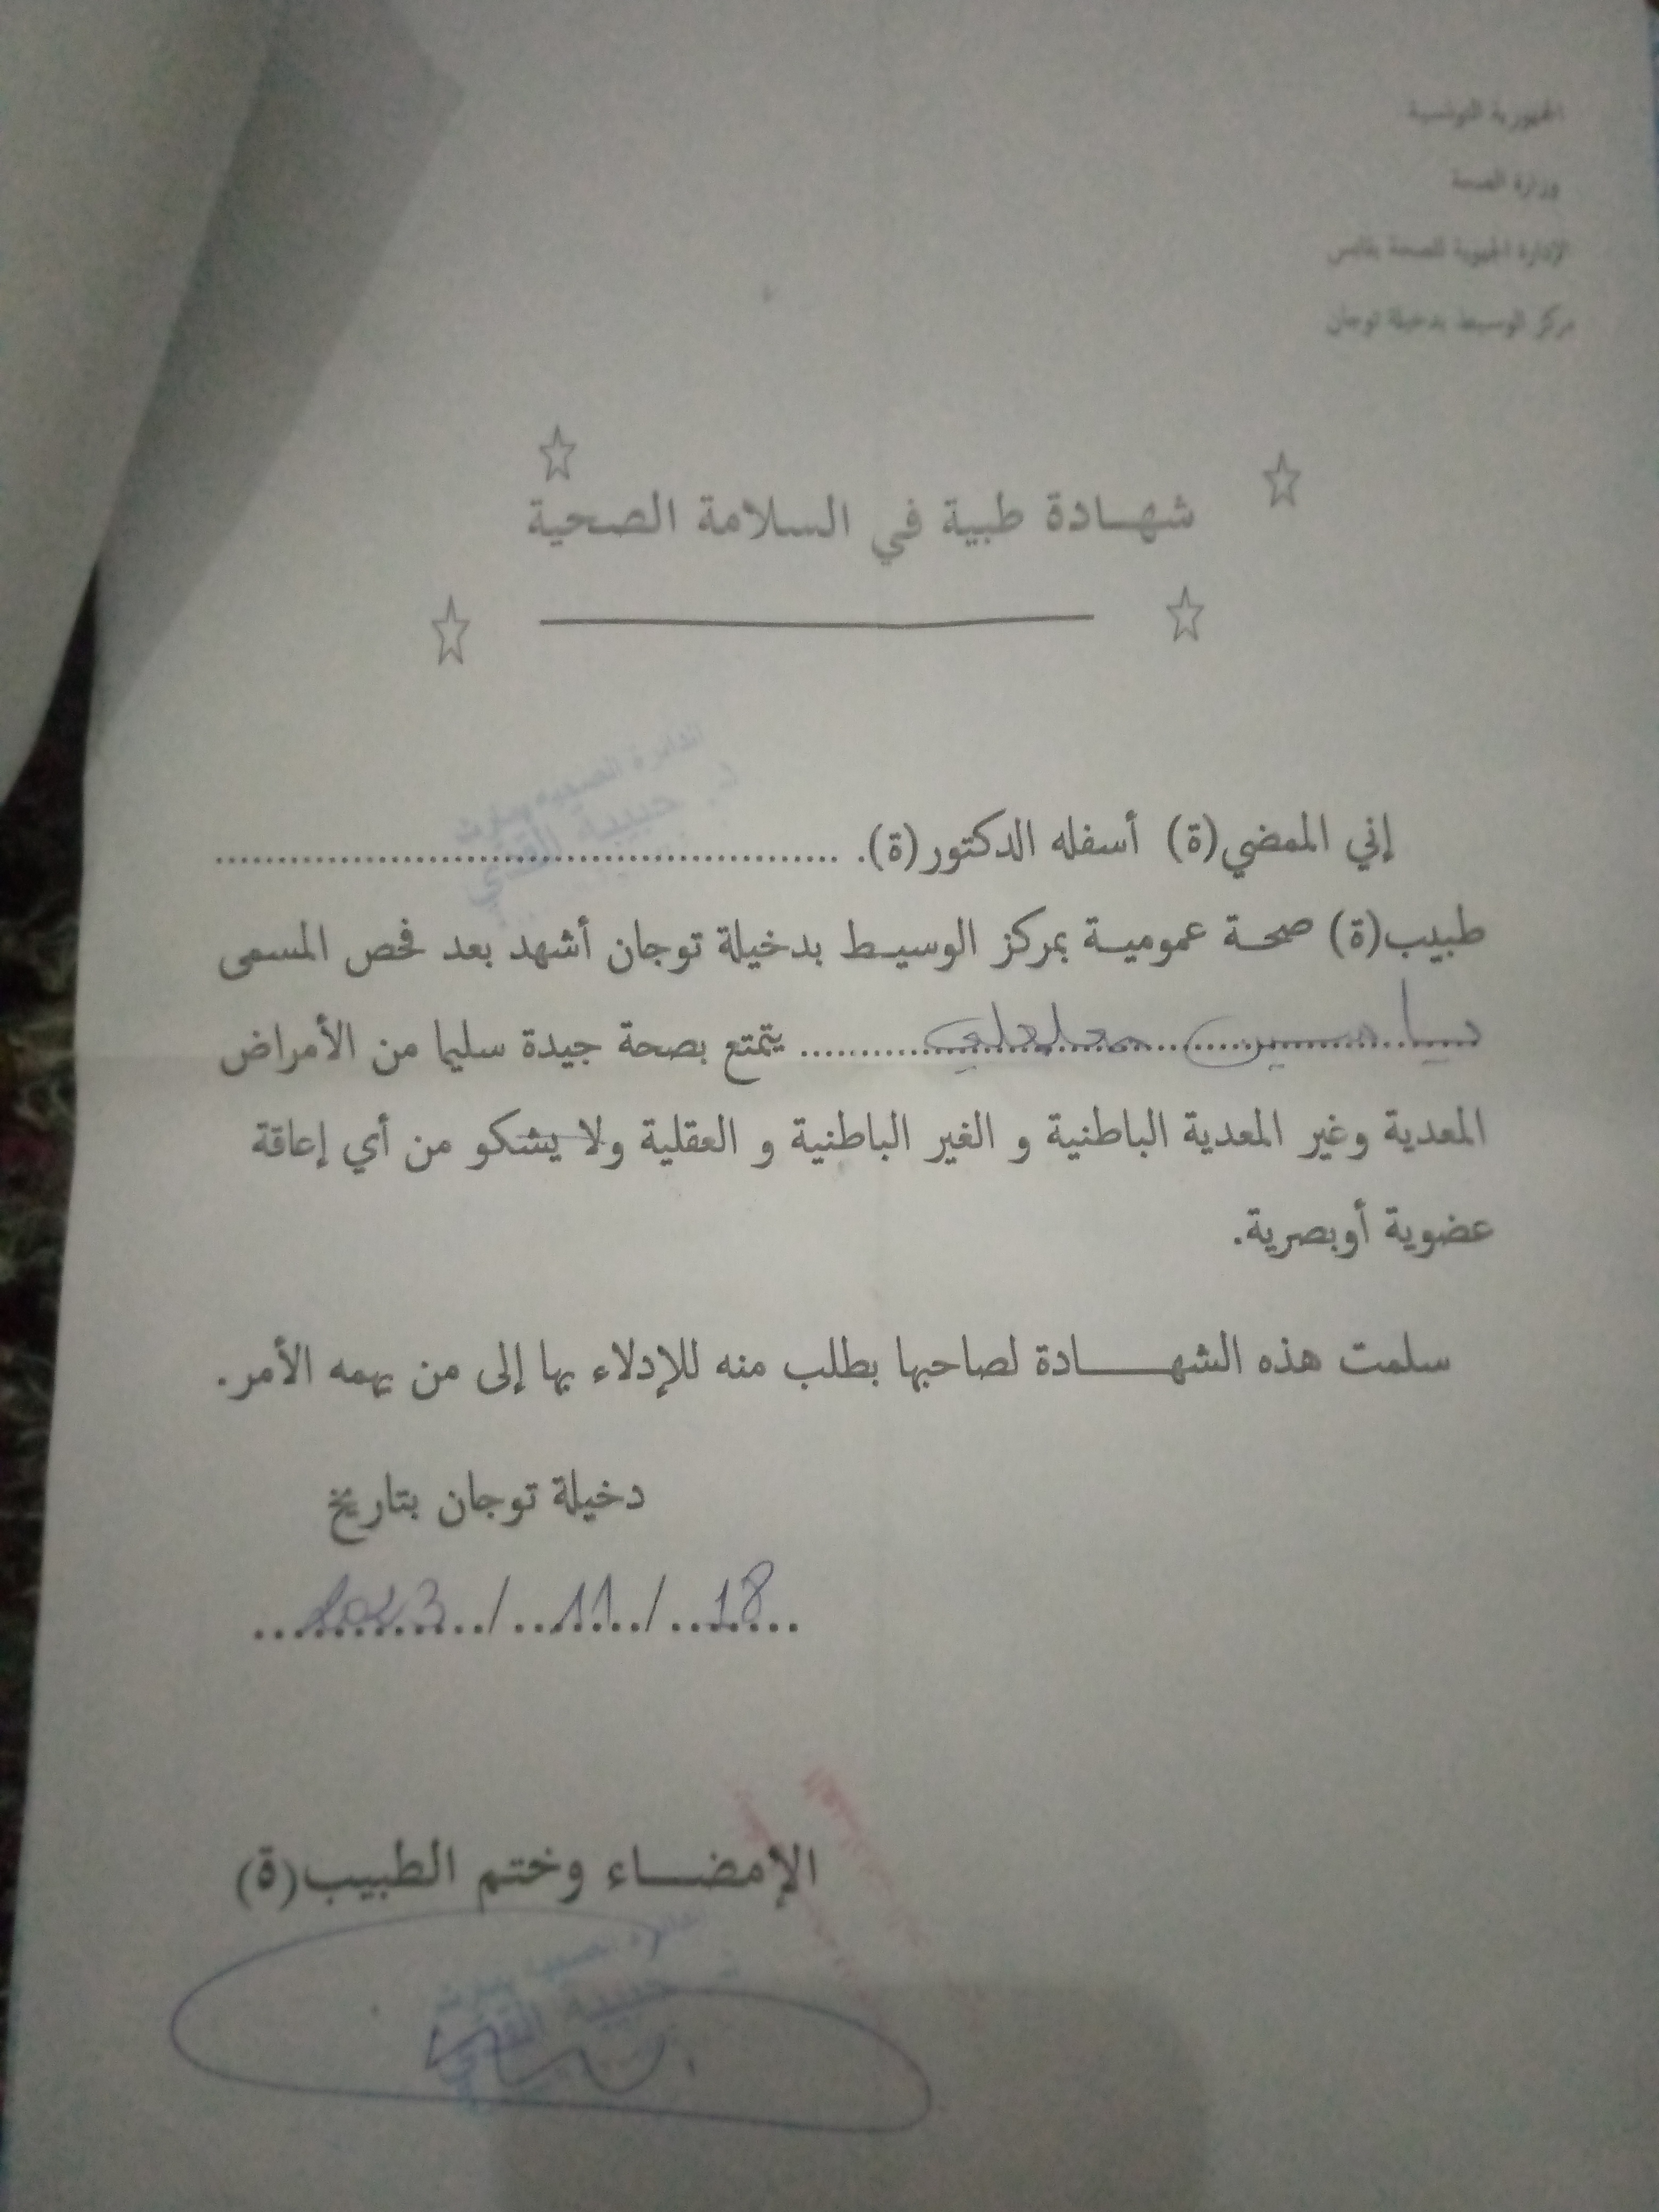 الجمهورية التونسية
وزارة الصحة
الإدارة الجهوية للصحة بقابس
مركز الوسيط بدخيلة توجان
شهـــادة طبية في السلامة الصحية
الدائرة الصحية بمارث
د. حبيبة
إني الممضي(ة) أسفله الدكتور(ة). ................................................
طبيب(ة) صحـة عموميـة بمركز الوسيـط بدخيلة توجان أشهد بعد فحص المسمى
................ يتمتع بصحة جيدة سليما من الأمراض
المعدية وغير المعدية الباطنية و الغير الباطنية و العقلية ولا يشتكو من أي إعاقة
عضوية أوبصرية.
سلمت هذه الشهــــــادة لصاحبها بطلب منه للإدلاء بها إلى من يهمه الأمر.
دخيلة توجان بتاريخ
18 / 11 / 2023
الإمضـــاء وختم الطبيب(ة)
حبيبة